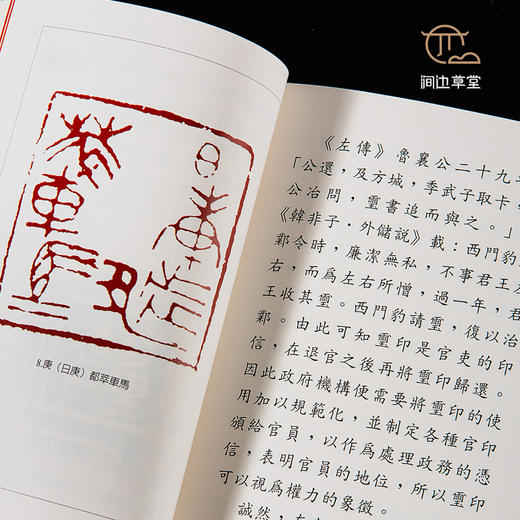 涧边草堂
8.庚（日庚）都萃車馬
《左傳》魯襄公二十九年
「公還，及方城，季武子取卡，
公治問，璽書追而與之。」
《韓非子·外儲説》載：西門豹
鄴令時，廉潔無私，不事君王左
右，而爲左右所憎，過一年，君
王收其璽。西門豹請璽，復以治
鄴。由此可知璽印是官吏的印
信，在退官之後再將璽印歸還。
因此政府機構便需要將璽印的使
用加以規範化，並制定各種官印
頒給官員，以作爲處理政務的憑
信，表明官員的地位，所以璽印
可以視爲權力的象徵。
誠然，